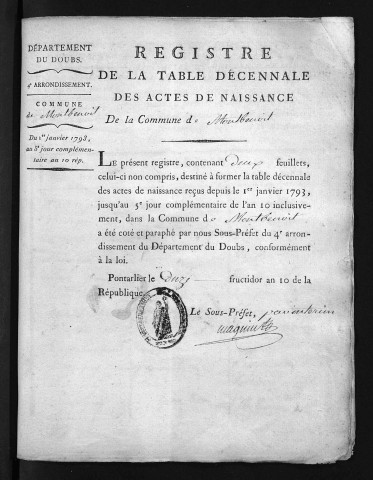 DÉPARTEMENT
DU DOUBS.
4e ARRONDISSEMENT.
COMMUNE
de Montbenoit
Du 1er janvier 1793,
au 5e jour complémen-
taire an 10 rép.
REGISTRE
DE LA TABLE DÉCENNALE
DES ACTES DE NAISSANCE
De la Commune de Montbenoit
LE présent registre, contenant deux feuillets,
celui-ci non compris, destiné à former la table décennale
des actes de naissance reçus depuis le 1er janvier 1793,
jusqu'au 5e jour complémentaire de l'an 10 inclusive-
ment, dans la Commune de Montbenoit
a été coté et paraphé par nous Sous-Préfet du 4e arron-
dissement du Département du Doubs, conformément
à la loi.
Pontarlier le fructidor an 10 de la
République.
Le Sous-Préfet, par interim